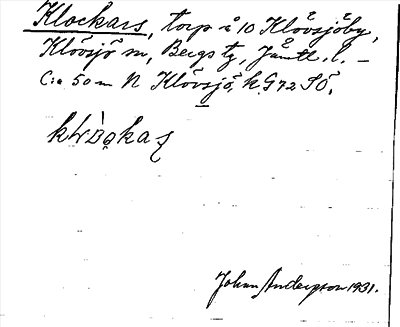 Klockars, torp å 10 Klövsjöby,
Klövsjö sn, Bergs tg, Jämtl. l. –
C:a 50 m N Klövsjö k G 72 SÖ.
Johan Anderson 1931.